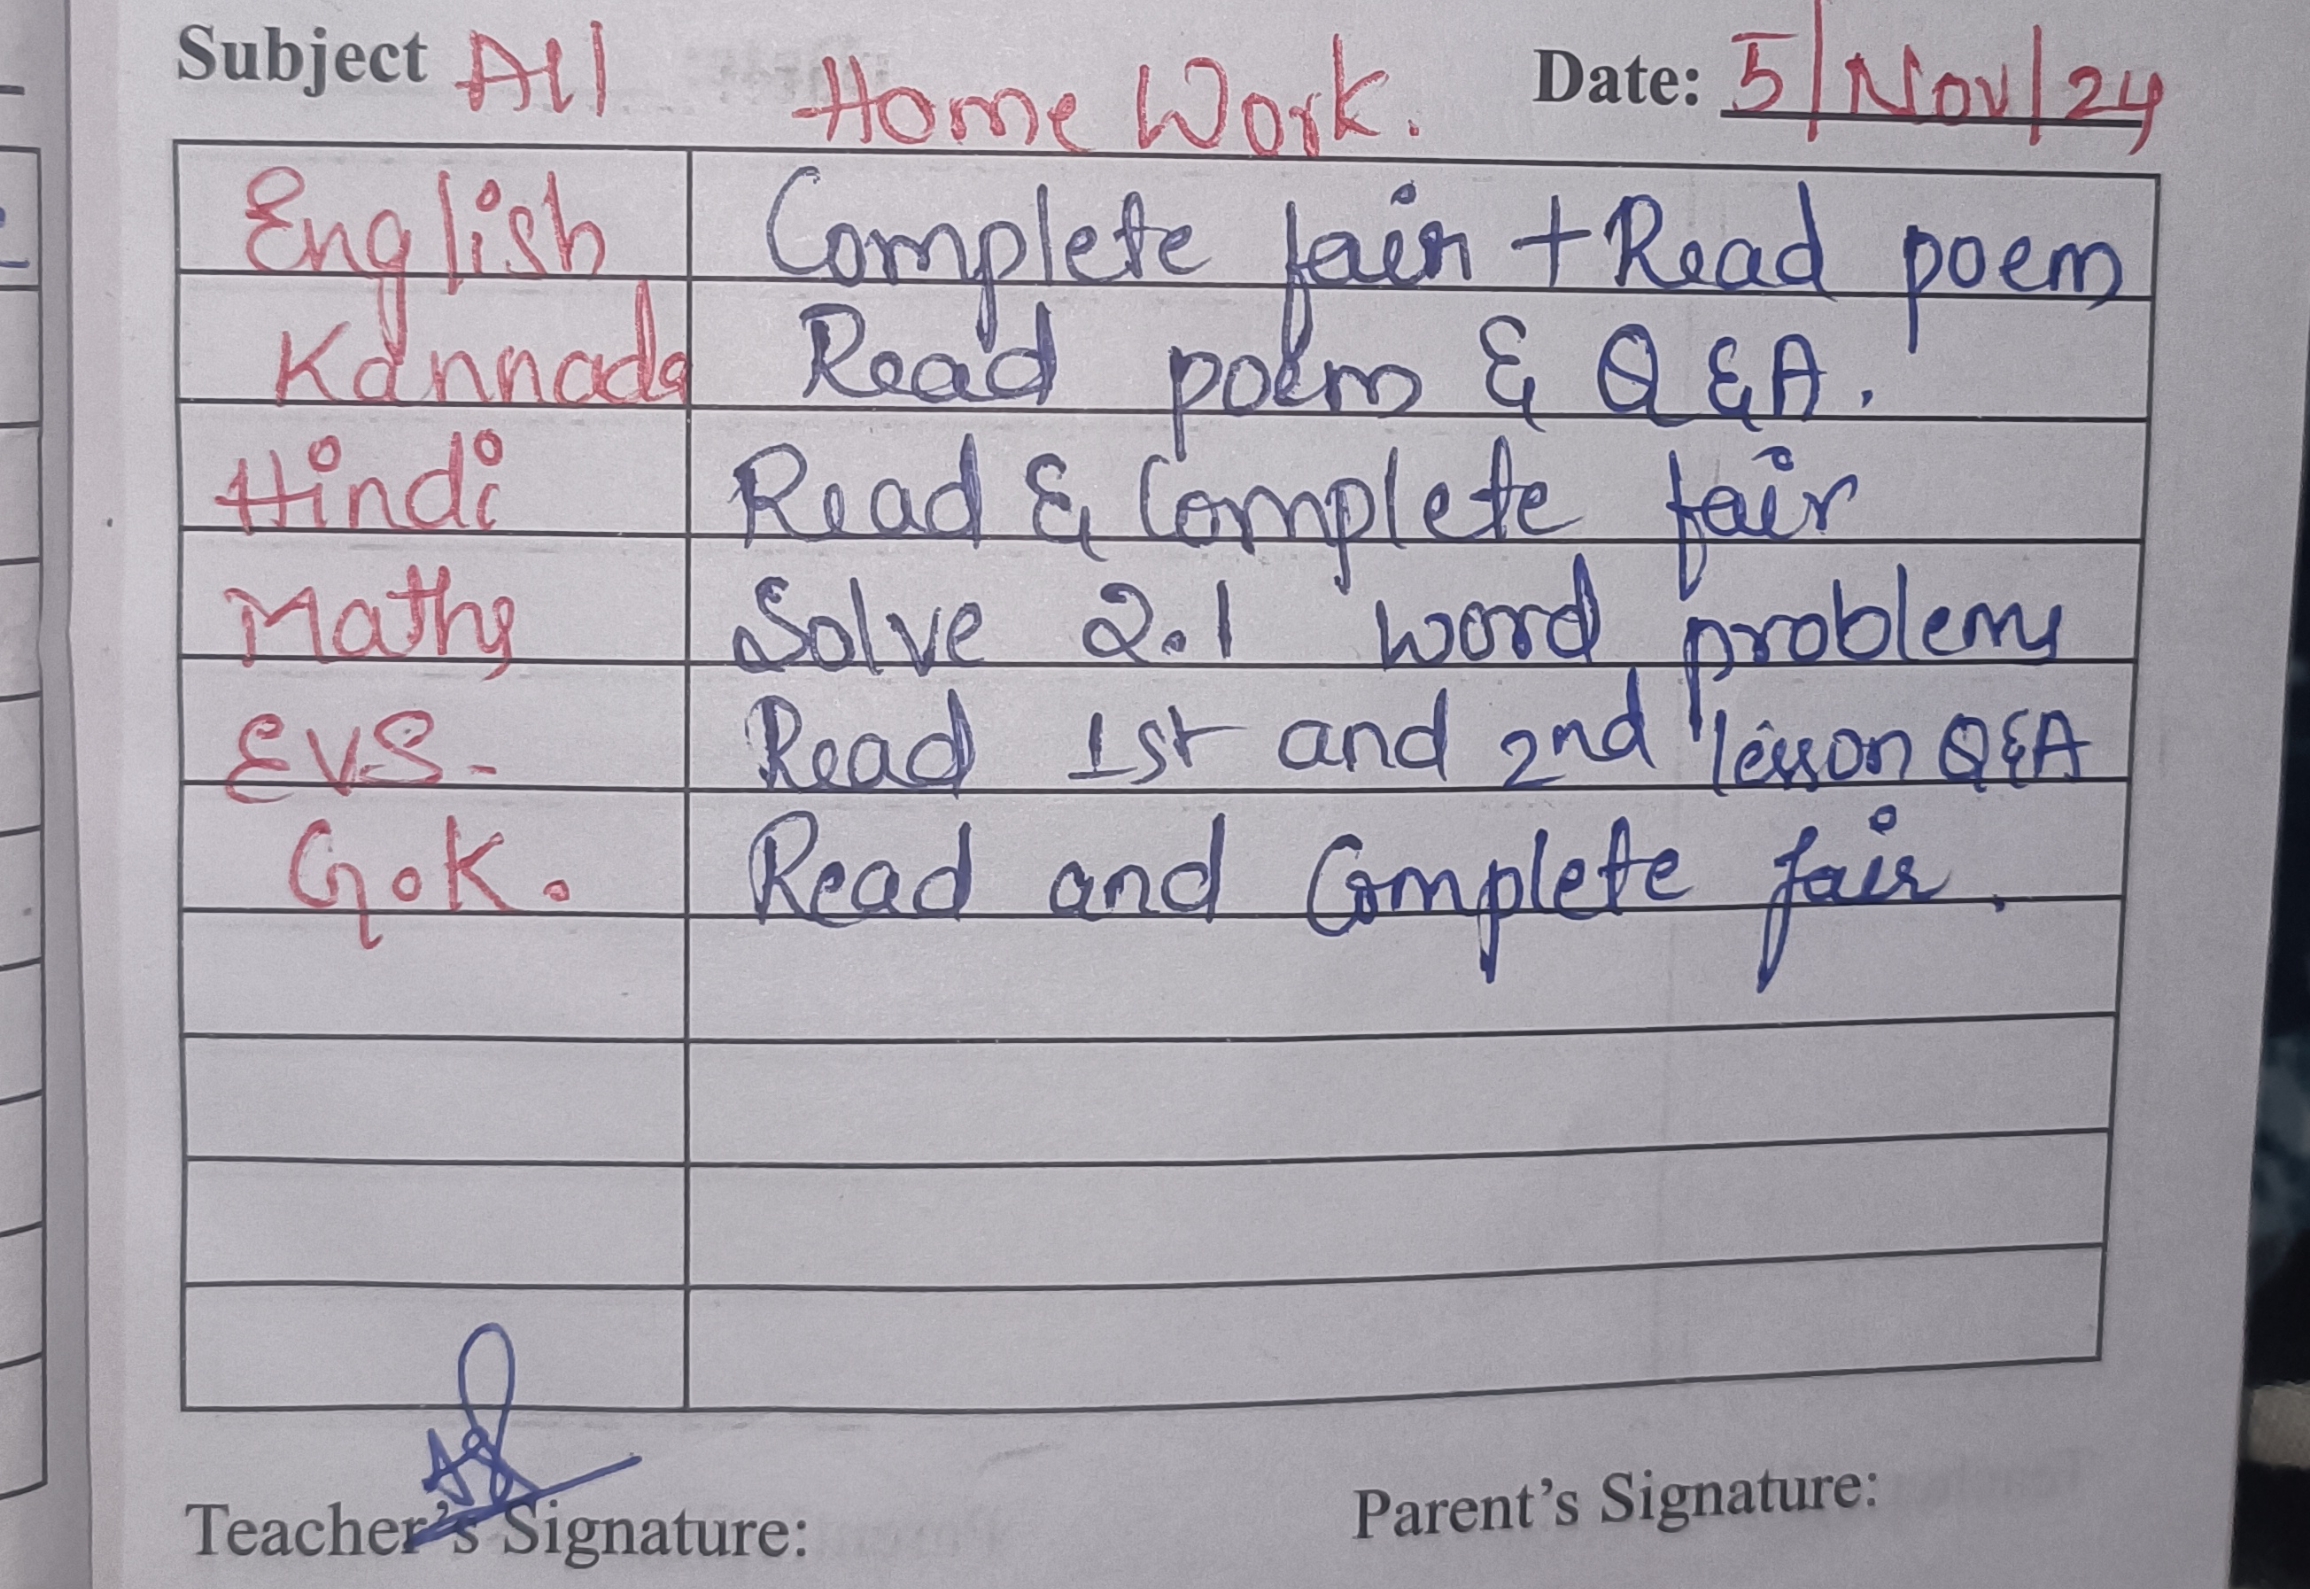 Subject All Home Work. Date: 5/Nov/24
English Complete fair + Read poem
Kannada Read poem & Q & A.
Hindi Read & Complete fair
Maths Solve 2.1 word problems
EVS- Read 1st and 2nd lesson Q&A
G.K. Read and Complete fair.
Teacher's Signature: Parent's Signature: